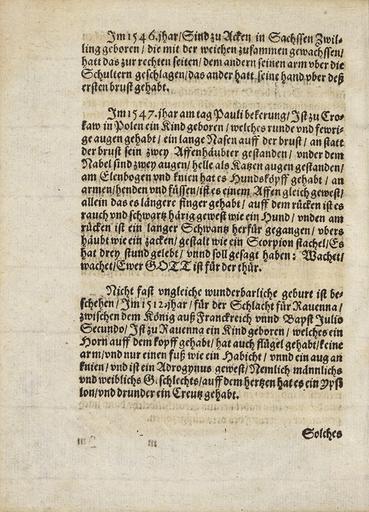 Im 1546. jhar/ Sind zu Acken in Sachssen Zwil-
ling geboren/ die mit der weichen zusammen gewachssen/
hatt das zur rechten seiten/ dem andern seinen arm vber die
Schultern geschlagen/ das ander hatt seine hand vber deß
ersten brust gehabt.
Im 1547. jhar am tag Pauli bekerung/ Ist zu Cro-
kaw in Polen ein Kind geboren/ welches runde vnd fewri-
ge augen gehabt/ ein lange Nasen auff der brust/ an statt
der brust sein zwey Affenhäubter gestanden/ vnder dem
Nabel sind zwey augen/ helle als Katzen augen gestanden/
am Elenbogen vnd knien hat es Hundsköpff gehabt/ an
armen/ henden vnd füssen/ ist es einem Affen gleich gewest/
allein das es längere finger gehabt/ auff dem rücken ist es
rauch vnd schwartz härig gewest wie ein Hund/ vnden am
rücken ist ein langer Schwantz herfür gegangen/ vbers
häubt wie ein zacken/ gestalt wie ein Scorpion stachel/ Es
hat drey stund gelebt/ vnnd soll gesagt haben: Wachet/
wachet/ Ewer GOTT ist für der thür.
Nicht fast vngleiche wunderbarliche geburt ist be-
schehen/ Im 1512. jhar/ für der Schlacht für Rauenna/
zwischen dem König auß Franckreich vnnd Bapst Julio
Secundo/ Ist zu Rauenna ein Kind geboren/ welches ein
Horn auff dem kopff gehabt/ hat auch flügel gehabt/ keine
arm/ vnd nur einen fuß wie ein Habicht/ vnnd ein aug an
knien/ vnd ist ein Adrogynus gewest/ Nemlich männlichs
vnd weiblichs Geschlechts/ auff dem hertzen hat es ein Ypsi
lon/ vnd drunder ein Creutz gehabt.
Solches